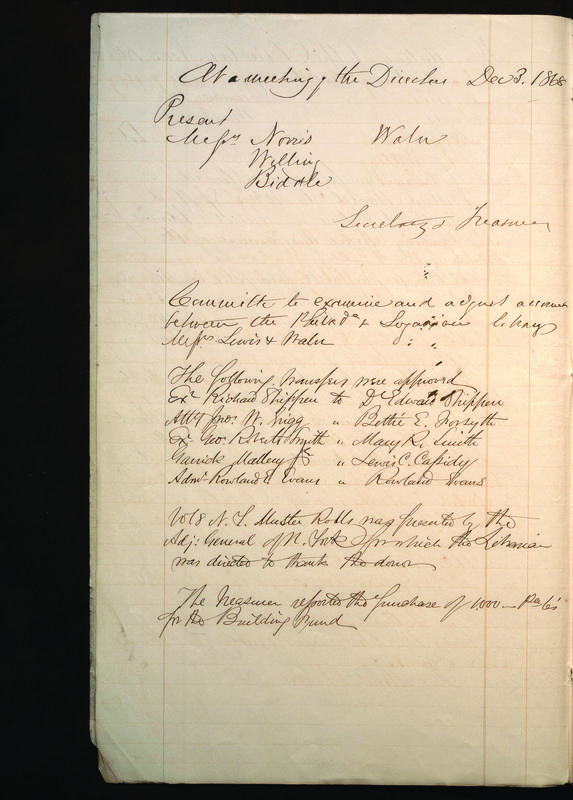 At a meeting of the Directors Dec 3. 1868
Present
Messrs Norris Waln
Willing
Biddle
Secretary & Treasurer
Committee to examine and adjust accounts
between the Philada & Loganian Library
Messrs Lewis & Waln
The following transfers were approved
Exr Richard Shippen to Dr Edward Shippen
Atty Jno. W. Grigg " Bettie E. Forsyth
Ex. Geo. Roberts Smith " Mary R. Smith
Garrick Mallery Jr " Lewis C. Cassidy
Admr Rowland E Evans " Rowland Evans
Vol 8 N. Y. Muster Rolls was presented by the
Adj: General of N. York for which the Librarian
was directed to thank the donor
The Treasurer reported the purchase of 1,000 – Pa 6s
for the Building Fund